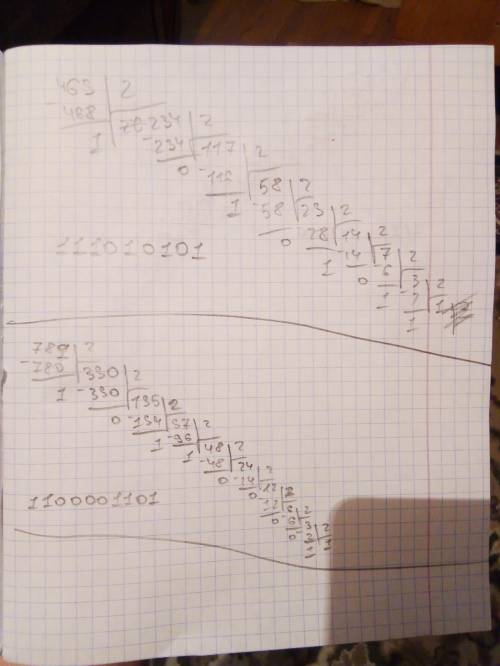 469 2
-468 234 2
1 -234 117 2
0 -116 58 2
1 -58 29 2
0 28 14 2
1 -14 7 2
0 6 3 2
1 2 1
1
111010101
789 2
-780 390 2
1 -390 195 2
0 -194 97 2
1 -96 48 2
1 -48 24 2
0 -24 12 2
0 -12 6 2
0 -6 3 2
0 2 1
1
1100001101